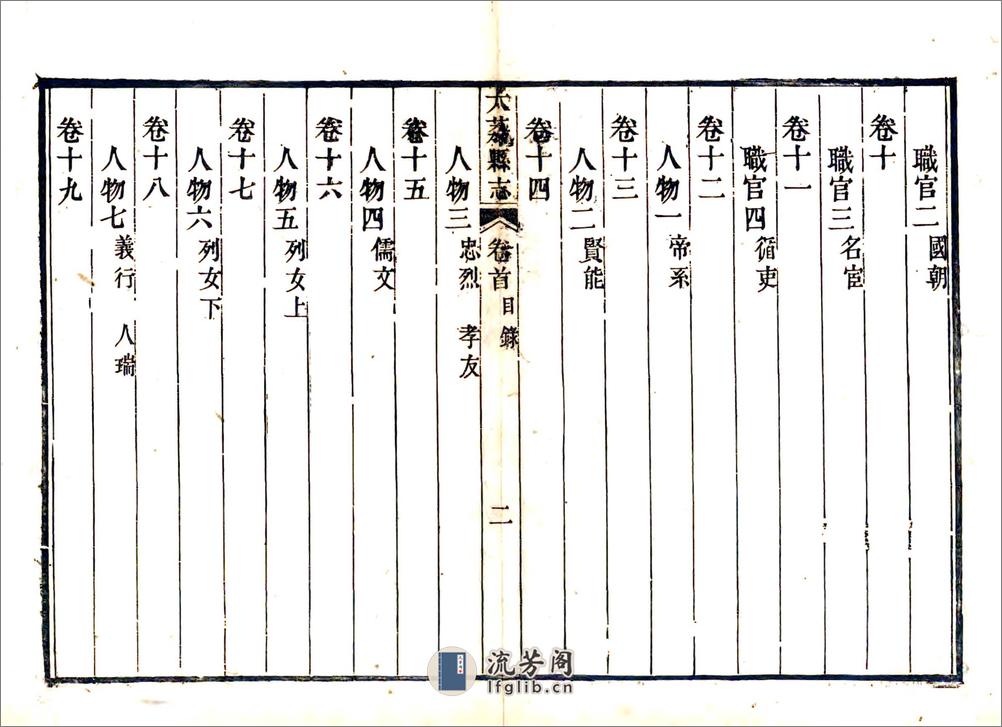 職官二 國朝
卷十
職官三 名宦
卷十一
職官四 循吏
卷十二
人物一 帝系
卷十三
人物二 賢能
卷十四
大荔縣志 卷首 目錄 二
人物三 忠烈 孝友
卷十五
人物四 儒文
卷十六
人物五 列女上
卷十七
人物六 列女下
卷十八
人物七 義行 人瑞
卷十九
流芳阁
lfglib.cn